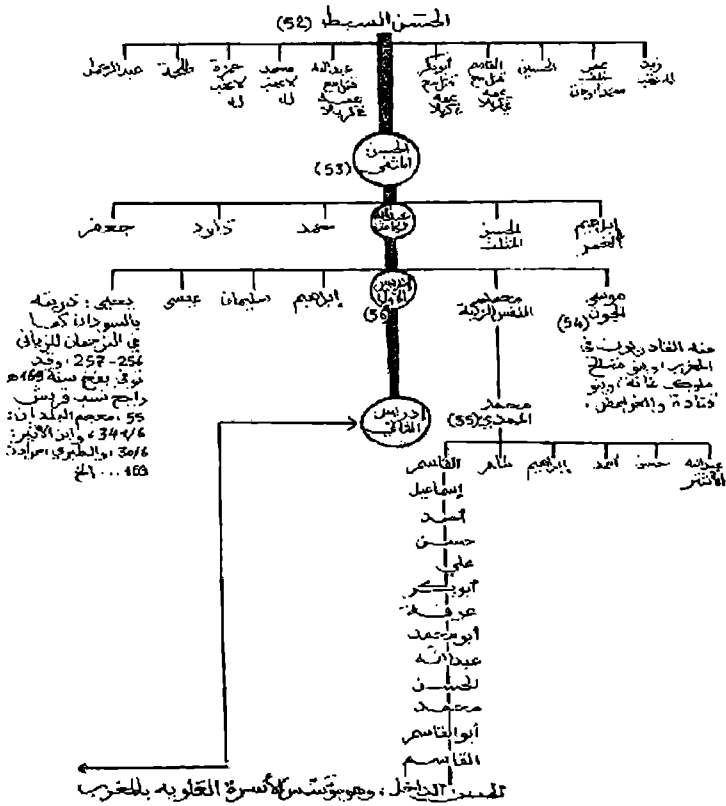 الحسن السبط (52)
زيد
لم يعقب
عمر
الحسين
القاسم
قتل مع
عمه
بكربلاء
أبو بكر
قتل مع
عمه
بكربلاء
عبد الله
قتل مع
عمه
بكربلاء
محمد
لا عقب
له
حمزة
لا عقب
له
طلحة
عبد الرحمان
الحسن
المثنى
(53)
إبراهيم
الغمر
الحسن
المثلث
عبد الله
محمد
داود
جعفر
موسى
الجون (54)
منه القادريون في
المغرب، وبنو صالح
ملوك غانة، وبنو
قتادة
محمد
النفس الزكية
إدريس
الأول
(56)
إبراهيم
سليمان
عيسى
يحيى: ذريته
بالسودان كما
في الترجمان للزياني
256-257، وقد
توفي بفخ سنة 169ه
راجع نسب قريش
55، معجم البلدان:
341/6، وابن الأثير:
30/6، والطبري حوادث
169... الخ
محمد
المهدي (55)
إدريس
الثاني
عبد الله
الأشتر
حسن
أحمد
إبراهيم
طاهر
القاسم
إسماعيل
أحمد
حسن
علي
أبو بكر
عرفة
أبو محمد
عبد الله
الحسن
محمد
أبو القاسم
القاسم
الحسن الداخل، وهو مؤسس الأسرة العلوية بالمغرب